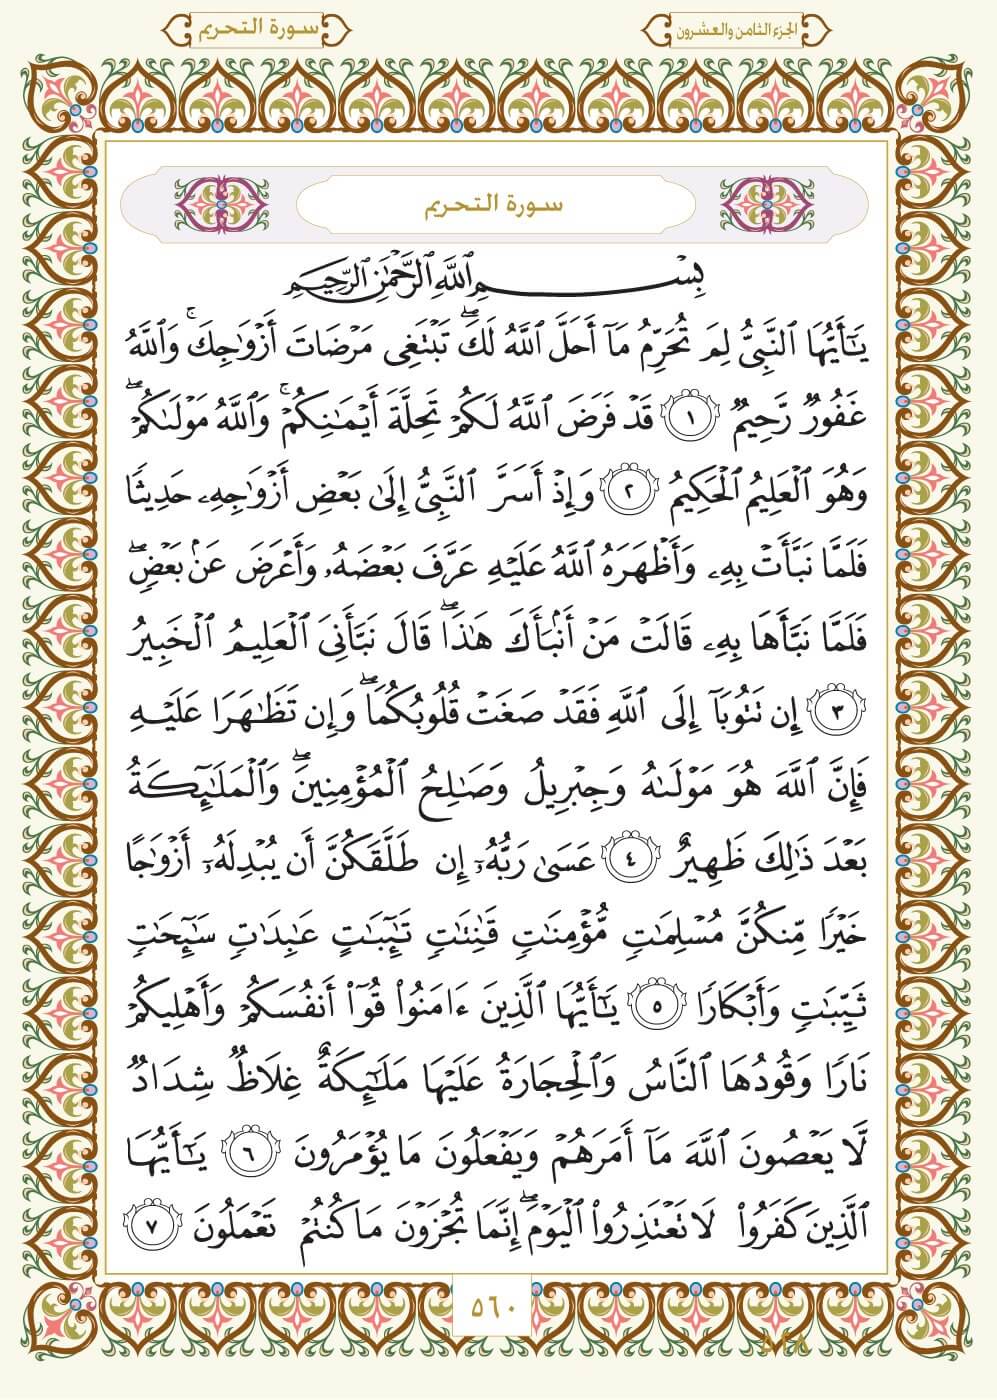 الجزء الثامن والعشرون
سورة التحريم
سورة التحريم
بِسْمِ ٱللَّهِ ٱلرَّحْمَٰنِ ٱلرَّحِيمِ
يَٰٓأَيُّهَا ٱلنَّبِيُّ لِمَ تُحَرِّمُ مَآ أَحَلَّ ٱللَّهُ لَكَۖ تَبْتَغِى مَرْضَاتَ أَزْوَٰجِكَۚ وَٱللَّهُ
غَفُورٌ رَّحِيمٌ ١ قَدْ فَرَضَ ٱللَّهُ لَكُمْ تَحِلَّةَ أَيْمَٰنِكُمْۚ وَٱللَّهُ مَوْلَىٰكُمْۖ
وَهُوَ ٱلْعَلِيمُ ٱلْحَكِيمُ ٢ وَإِذْ أَسَرَّ ٱلنَّبِىُّ إِلَىٰ بَعْضِ أَزْوَٰجِهِۦ حَدِيثًا
فَلَمَّا نَبَّأَتْ بِهِۦ وَأَظْهَرَهُ ٱللَّهُ عَلَيْهِ عَرَّفَ بَعْضَهُۥ وَأَعْرَضَ عَنۢ بَعْضٍۖ
فَلَمَّا نَبَّأَهَا بِهِۦ قَالَتْ مَنْ أَنۢبَأَكَ هَٰذَاۖ قَالَ نَبَّأَنِىَ ٱلْعَلِيمُ ٱلْخَبِيرُ
٣ إِن تَتُوبَآ إِلَى ٱللَّهِ فَقَدْ صَغَتْ قُلُوبُكُمَاۖ وَإِن تَظَٰهَرَا عَلَيْهِ
فَإِنَّ ٱللَّهَ هُوَ مَوْلَىٰهُ وَجِبْرِيلُ وَصَٰلِحُ ٱلْمُؤْمِنِينَۖ وَٱلْمَلَٰٓئِكَةُ
بَعْدَ ذَٰلِكَ ظَهِيرٌ ٤ عَسَىٰ رَبُّهُۥٓ إِن طَلَّقَكُنَّ أَن يُبْدِلَهُۥٓ أَزْوَٰجًا
خَيْرًا مِّنكُنَّ مُسْلِمَٰتٍ مُّؤْمِنَٰتٍ قَٰنِتَٰتٍ تَٰٓئِبَٰتٍ عَٰبِدَٰتٍ سَٰٓئِحَٰتٍ
ثَيِّبَٰتٍ وَأَبْكَارًا ٥ يَٰٓأَيُّهَا ٱلَّذِينَ ءَامَنُوا۟ قُوٓا۟ أَنفُسَكُمْ وَأَهْلِيكُمْ
نَارًا وَقُودُهَا ٱلنَّاسُ وَٱلْحِجَارَةُ عَلَيْهَا مَلَٰٓئِكَةٌ غِلَاظٌ شِدَادٌ
لَّا يَعْصُونَ ٱللَّهَ مَآ أَمَرَهُمْ وَيَفْعَلُونَ مَا يُؤْمَرُونَ ٦ يَٰٓأَيُّهَا
ٱلَّذِينَ كَفَرُوا۟ لَا تَعْتَذِرُوا۟ ٱلْيَوْمَۖ إِنَّمَا تُجْزَوْنَ مَا كُنتُمْ تَعْمَلُونَ ٧
٥٦٠